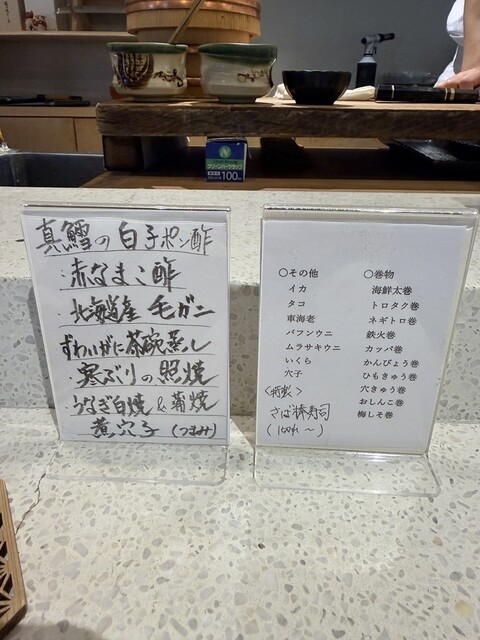 真鱈の白子ポン酢
・赤なまこ酢
・北海道産 毛ガニ
ずわいがに茶碗蒸し
・寒ぶりの照焼
・うなぎ白焼&蒲焼
煮穴子(つまみ)
〇その他
イカ
タコ
車海老
バフンウニ
ムラサキウニ
いくら
穴子
<特製>
さば棒寿司
(1切れ~)
〇巻物
海鮮太巻
トロタク巻
ネギトロ巻
鉄火巻
カッパ巻
かんぴょう巻
ひもきゅう巻
穴きゅう巻
おしんこ巻
梅しそ巻
100